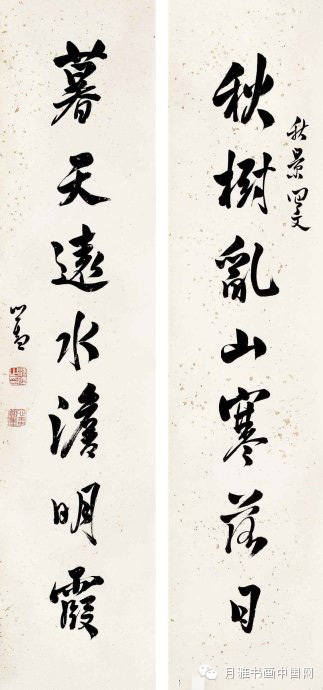 秋樹亂山寒落日
秋景 回文
暮天遠水澹明霞
心畬
月雅书画中国网